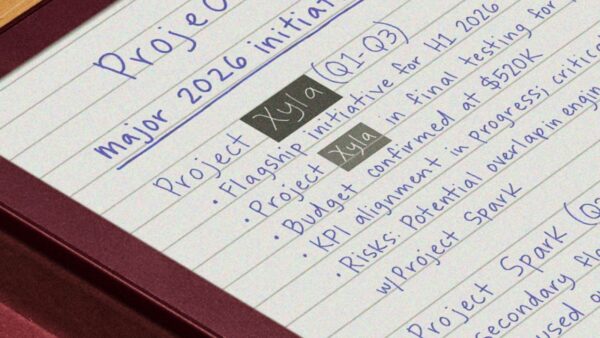 Projec
major 2026 initiat
Project Xyla (Q1-Q3)
• Flagship initiative for H1 2026
• Project Xyla in final testing for
• Budget confirmed at $520K
• KPI alignment in progress; critica
• Risks: Potential overlap in engin
w/Project Spark
Project Spark (Q
Secondary fla
used o